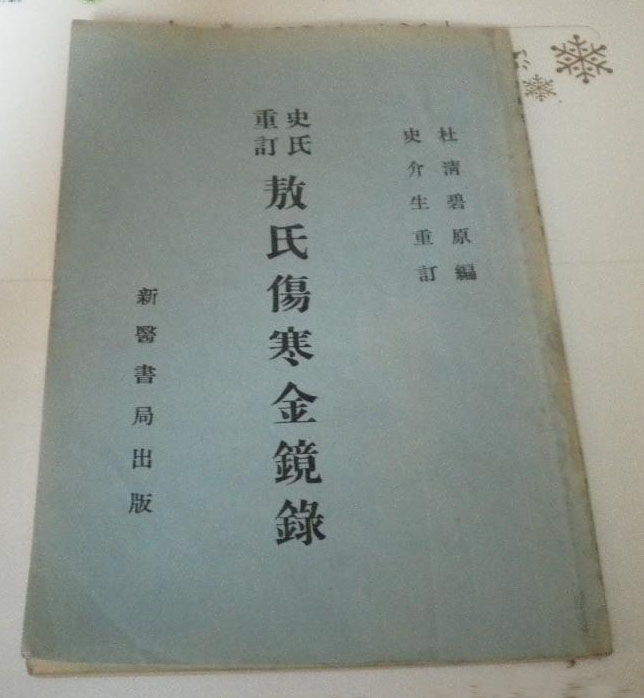 杜清碧原編
史介生重訂
史氏重訂
敖氏傷寒金鏡錄
新醫書局出版